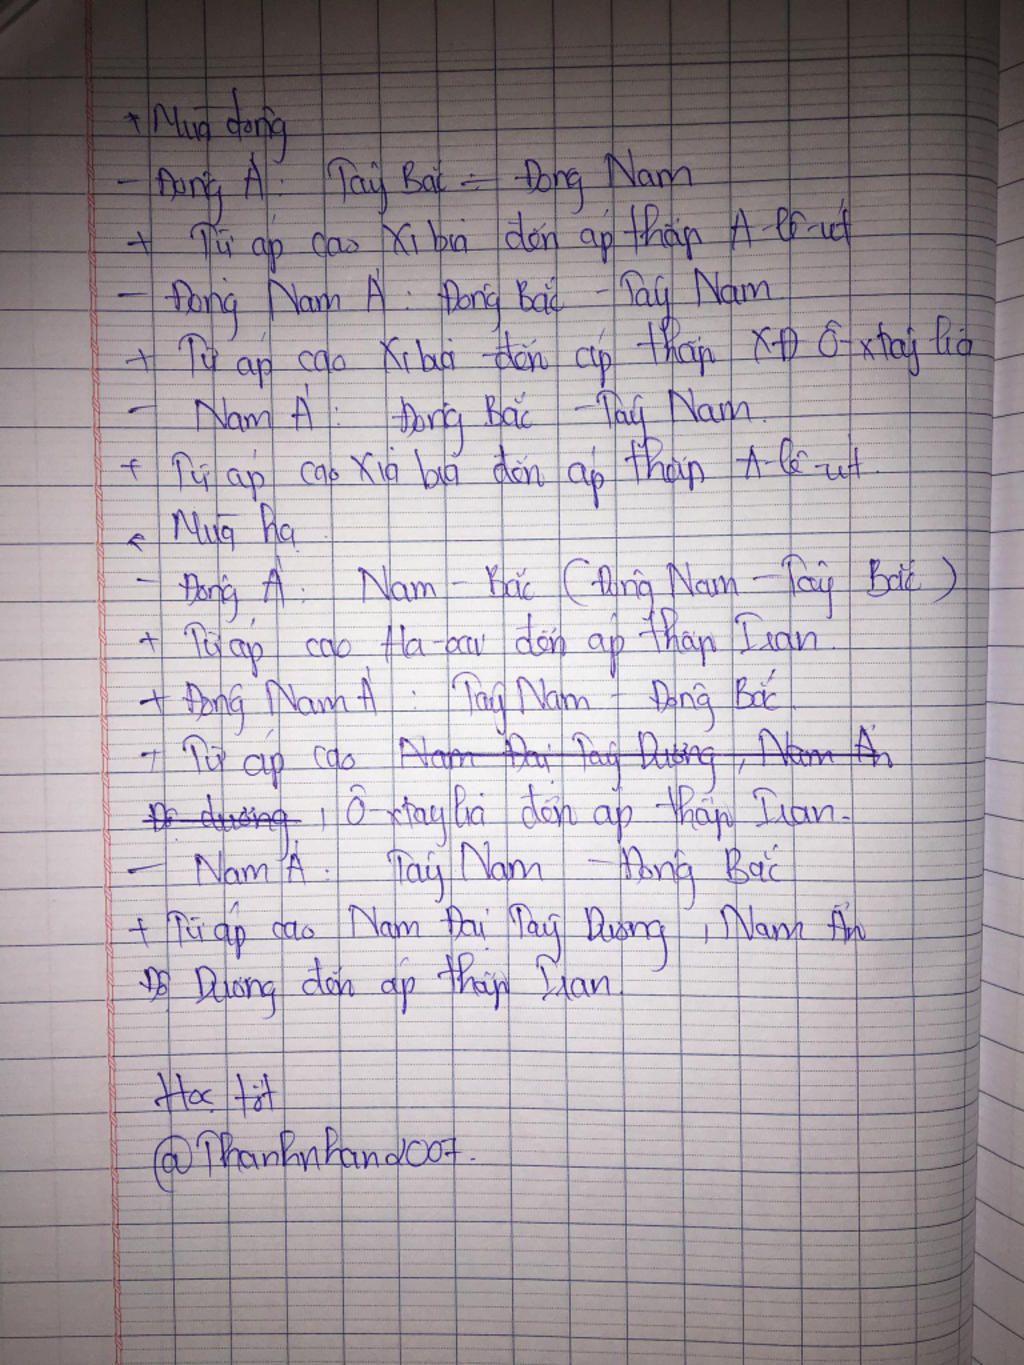 * Mùa đông
- Đông Á: Tây Bắc - Đông Nam
+ Từ áp cao Xi bia đến áp thấp A-lê-út
- Đông Nam Á: Đông Bắc - Tây Nam
+ Từ áp cao Xi bia đến áp thấp XĐ Ô-xtrây lia
- Nam Á: Đông Bắc - Tây Nam.
+ Từ áp cao Xia bia đến áp thấp A-lê-út.
* Mùa hạ
- Đông Á: Nam - Bắc (Đông Nam - Tây Bắc)
+ Từ áp cao Ha-oai đến áp thấp Iran.
+ Đông Nam Á: Tây Nam - Đông Bắc.
+ Từ áp cao Nam Đại Tây Dương, Nam Ấn
Độ dương, Ô-xtây lia đến áp thấp Iran.
- Nam Á: Tây Nam - Đông Bắc
+ Từ áp cao Nam Đại Tây Dương, Nam Ấn
Độ Dương đến áp thấp Iran.
Học tốt
@Thanhnhan2007.